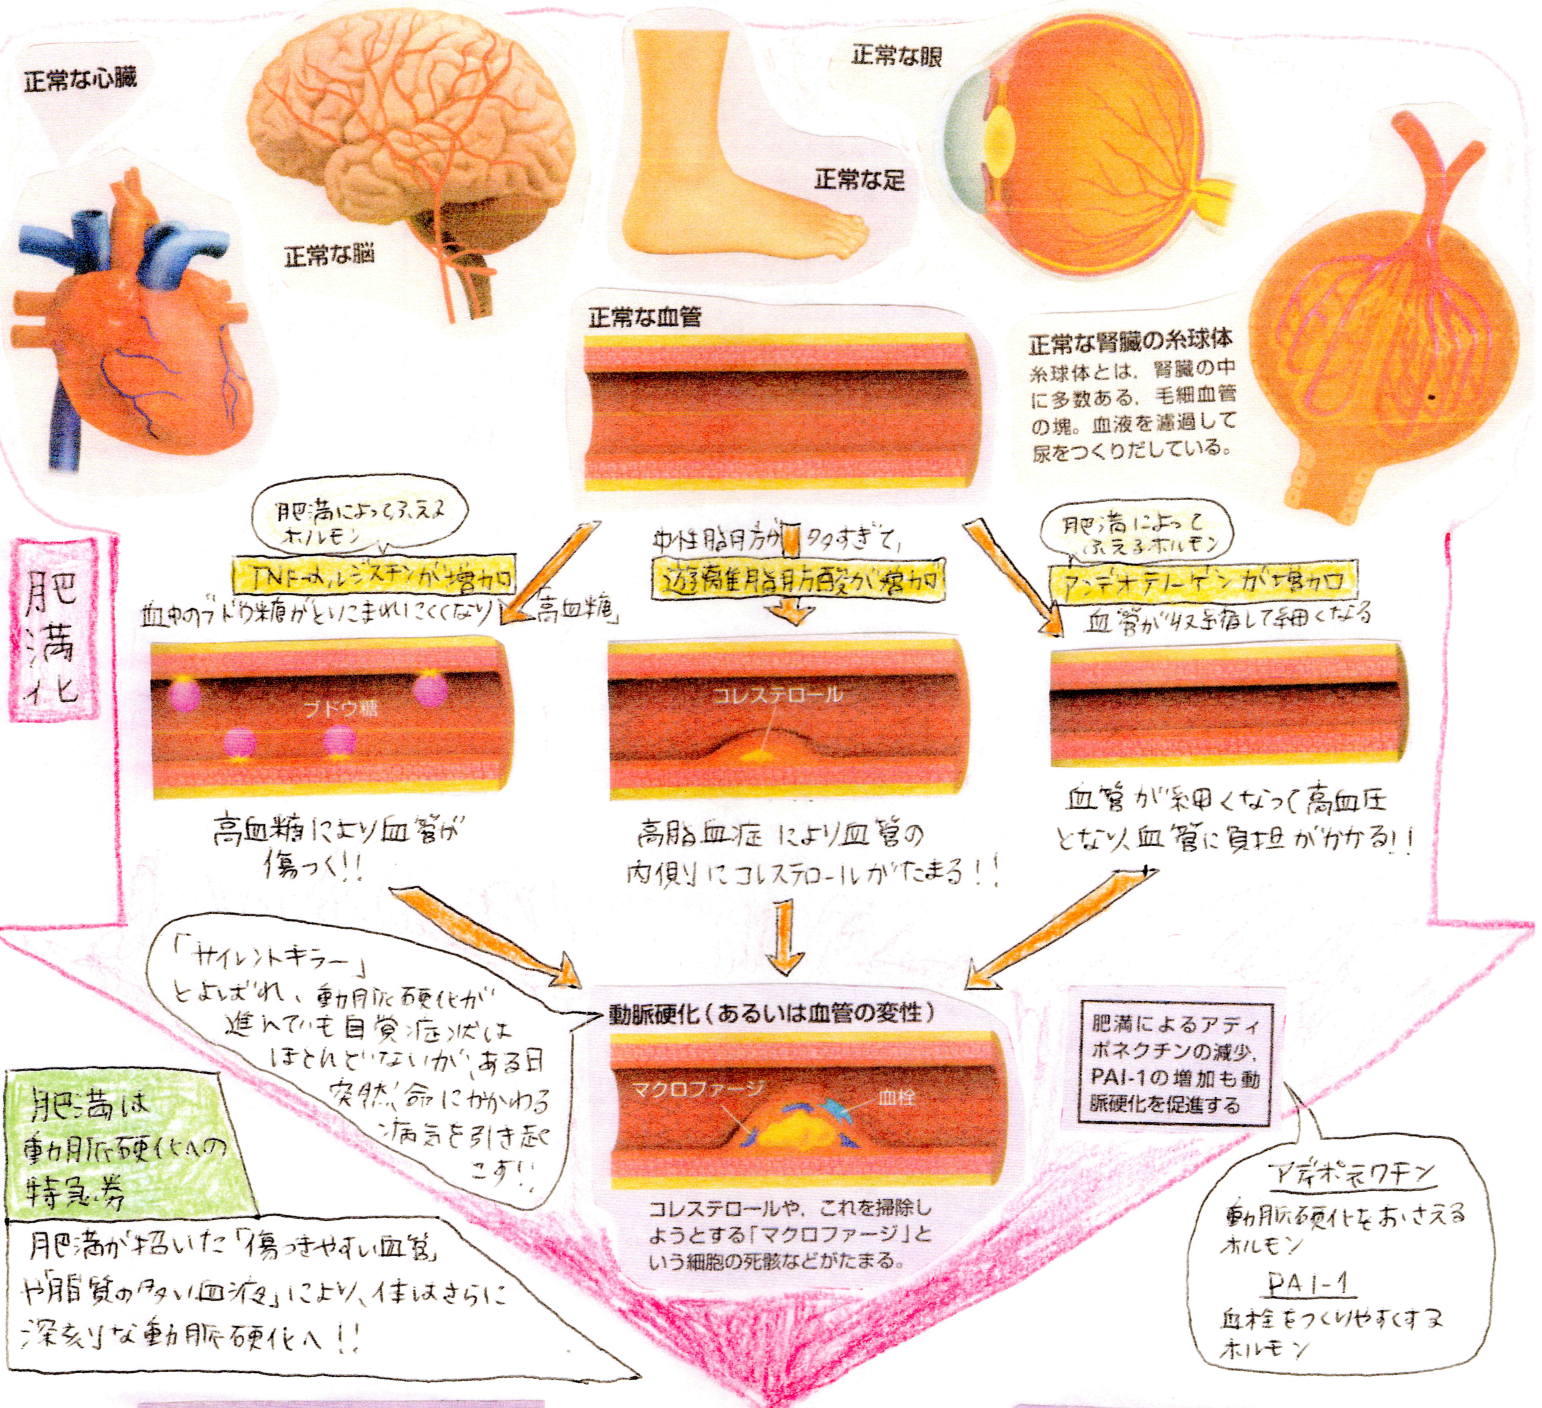 正常な心臓
正常な脳
正常な足
正常な眼
正常な血管
正常な腎臓の糸球体
糸球体とは、腎臓の中
に多数ある、毛細血管
の塊。血液を濾過して
尿をつくりだしている。
肥満化
肥満によってふえる
ホルモン
TNF-α、レジスチンが増加
血中のブドウ糖がとりこまれにくくなり「高血糖」
中性脂肪が多すぎて、
遊離脂肪酸が増加
肥満によって
ふえるホルモン
アンデオテノーゲンが増加
血管が収縮して細くなる
ブドウ糖
コレステロール
高血糖により血管が
傷つく!!
高脂血症により血管の
内側にコレステロールがたまる!!
血管が細くなって高血圧
となり、血管に負担がかかる!!
「サイレントキラー」
とよばれ、動脈硬化が
進んでいも自覚症状は
ほとんどないが、ある日
突然、命にかかわる
病気を引き起
こす!!
動脈硬化(あるいは血管の変性)
マクロファージ
血栓
コレステロールや、これを掃除し
ようとする「マクロファージ」と
いう細胞の死骸などがたまる。
肥満によるアディ
ポネクチンの減少、
PAI-1の増加も動
脈硬化を促進する
アディポネクチン
動脈硬化をおさえる
ホルモン
PAI-1
血栓をつくりやすくする
ホルモン
肥満は
動脈硬化への
特急券
肥満が招いた「傷つきやすい血管」
や「脂質の多い血液」により、体はさらに
深刻な動脈硬化へ!!